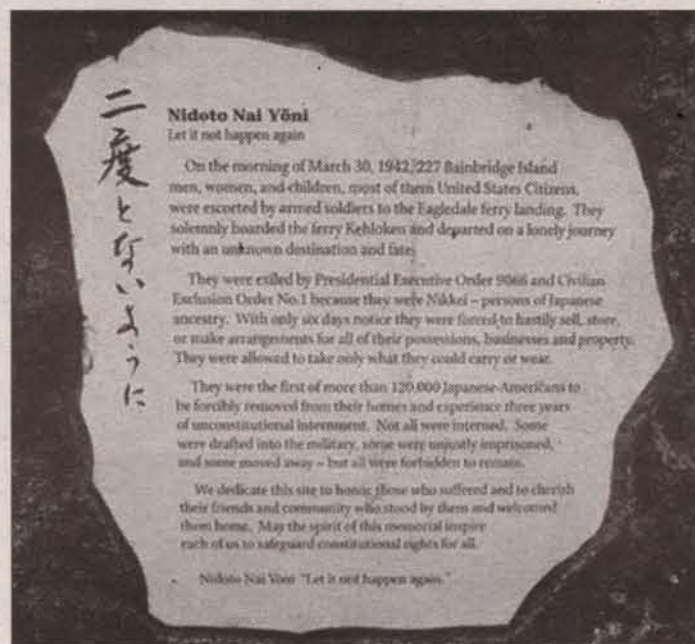 二度とないように
Nidoto Nai Yōni
Let it not happen again
On the morning of March 30, 1942, 227 Bainbridge Island
men, women, and children, most of them United States Citizens,
were escorted by armed soldiers to the Eagledale ferry landing. They
solemnly boarded the ferry Kehloken and departed on a lonely journey
with an unknown destination and fate.
They were exiled by Presidential Executive Order 9066 and Civilian
Exclusion Order No.1 because they were Nikkei – persons of Japanese
ancestry. With only six days notice they were forced to hastily sell, store,
or make arrangements for all of their possessions, businesses and property.
They were allowed to take only what they could carry or wear.
They were the first of more than 120,000 Japanese-Americans to
be forcibly removed from their homes and experience three years
of unconstitutional internment. Not all were interned. Some
were drafted into the military, some were unjustly imprisoned,
and some moved away – but all were forbidden to remain.
We dedicate this site to honor those who suffered and to cherish
their friends and community who stood by them and welcomed
them home. May the spirit of this memorial inspire
each of us to safeguard constitutional rights for all.
Nidoto Nai Yoni "Let it not happen again."